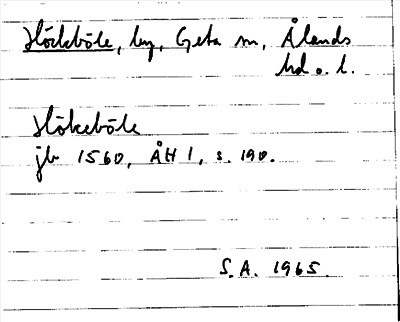 Höckböle, by, Geta sn, Ålands
hd o. l.
Hökeböle
jb 1560, ÅH 1, s. 190.
S.A. 1965.